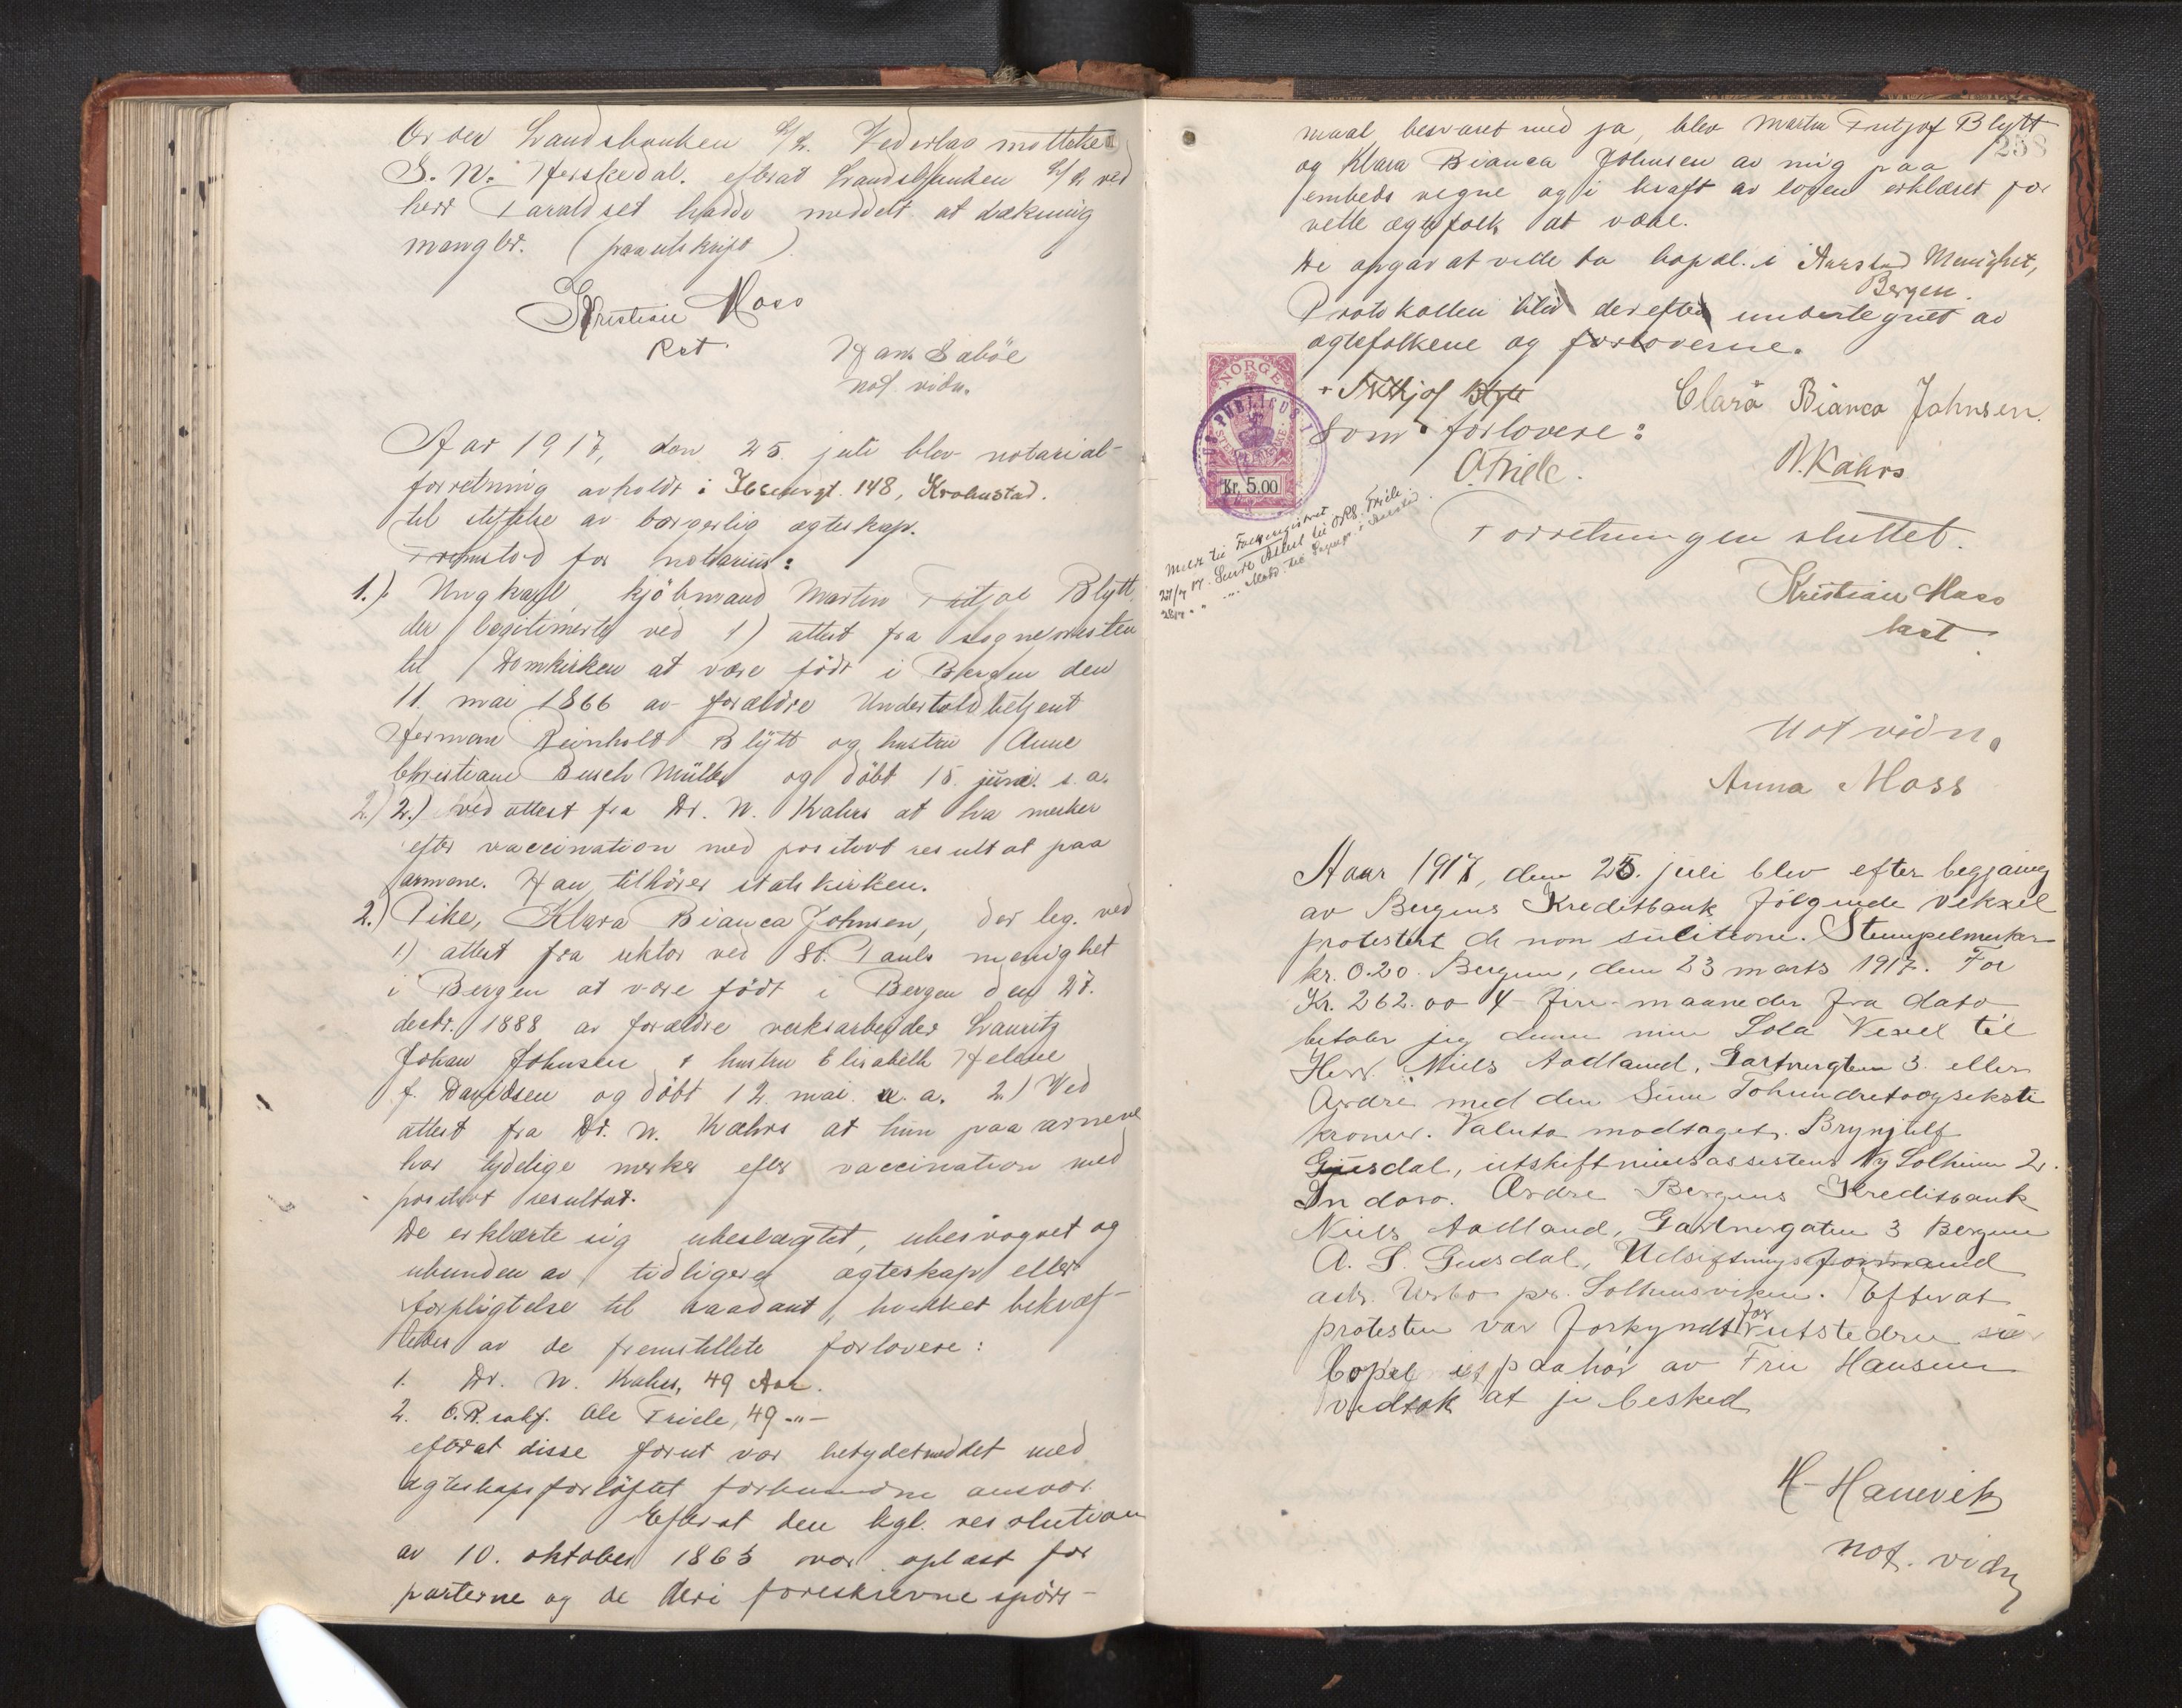 Order Landsbanken A/S. Vederlag mottatt
S. N. Herskedal. efterat Landsbanken A/S ved
herr Taraldset hadde meddelt at dækning
mangler. (paa utskrift)
Kristian Moss
kst.
Hans Saböe
not. vidn.
Aar 1917, den 25. juli blev notarial-
forretning avholdt i Ibsensgt. 148, Kronstad.
til stiftelse av borgerlig ægteskap.
Fremstod for notarius:
1.) Ungkarl, kjöbmand Martin Fritjof Blytt
der legitimerte ved 1) attest fra sognepresten
til Domkirken at være födt i Bergen den
11. mai 1866 av forældre Undertoldbetjent
Herman Reinholt Blytt og hustru Anne
Christiane Busch Müller og döbt 15. juni s. a.
2.) 2.) ved attest fra Dr. W. Kahrs at ha merker
efter vaccination med positivt resultat paa
armene. Han tilhörer statskirken.
2.) Pike, Klara Bianca Johnsen, der leg. ved
1) attest fra rektor ved St. Pauls menighet
i Bergen at være födt i Bergen den 27.
decbr. 1888 av forældre verksarbeider Lauritz
Johan Johnsen & hustru Elisabeth Helene
f. Davidsen og döbt 12. mai n. a. 2) Ved
attest fra Dr. W. Kahrs at hun paa armene
har tydelige merker efter vaccination med
positivt resultat.
De erklærte sig ubeslægtet, ubesvogret og
ubunden av tidligere ægteskap eller
forpligtelse til saadant, hvilket bekræf-
tedes av de fremstillete forlovere:
1. Dr. W. Kahrs, 49 Aar.
2. O.R.sakf. Ole Friele, 49 -"-
efterat disse forut var betydet med det med
ægteskapsforlöftet forbundne ansvar.
Efterat den kgl. resolution
av 10. oktober 1863 var oplæst for
parterne og de deri foreskrevne spörs-
258
maal besvaret med ja, blev Martin Fritjof Blytt
og Klara Bianca Johnsen av mig paa
embeds vegne og i kraft av loven erklæret for
rette ægtefolk at være.
De opgav at ville ta bopæl i Aarstad Menighet,
Bergen.
Protokollen blev derefter undertegnet av
ægtefolkene og forloverne.
Fritjof Blytt
Clara Bianca Johnsen.
Som forlovere:
O. Friele.
W. Kahrs
NORGE
PUBLICUS
Kr. 5.00
Meldt til Folkeregistret
27/7 17. Sendt Attest til ORS. Friele.
28/7 " " ... Medd. til Sognepr. i Aarstad.
Forretningen sluttet.
Kristian Moss
kst.
Not vidn.
Anna Moss
Aaar 1917, den 25. juli blev efter begjæring
av Bergens Kreditbank fölgende veksel
protestert de non solutione. Stempelmerker
kr. 0.20. Bergen, den 23 marts 1917. For
Kr. 262.00 4 fire maaneder fra dato
betaler jeg denne min Sola Vexel til
Herr. Niels Aadland, Gartnergten 3. eller
Ordre med den Sum Tohundretoogseksti
kroner. Valuta modtaget. Brynjulf
Gusdal, utskiftningsassistent Ny Solheim 2.
In dorso. Ordre Bergens Kreditbank
Niels Aadland, Gartnergaten 3 Bergen
A. S. Gusdal, Udskiftningsformand
adr. Urbo pr. Solheimsviken. Efterat
protesten var forkyndt for utstederen
bopæl i paahör av Fru Hansen
vedtok at gi besked
H. Hanevik
not. vidn